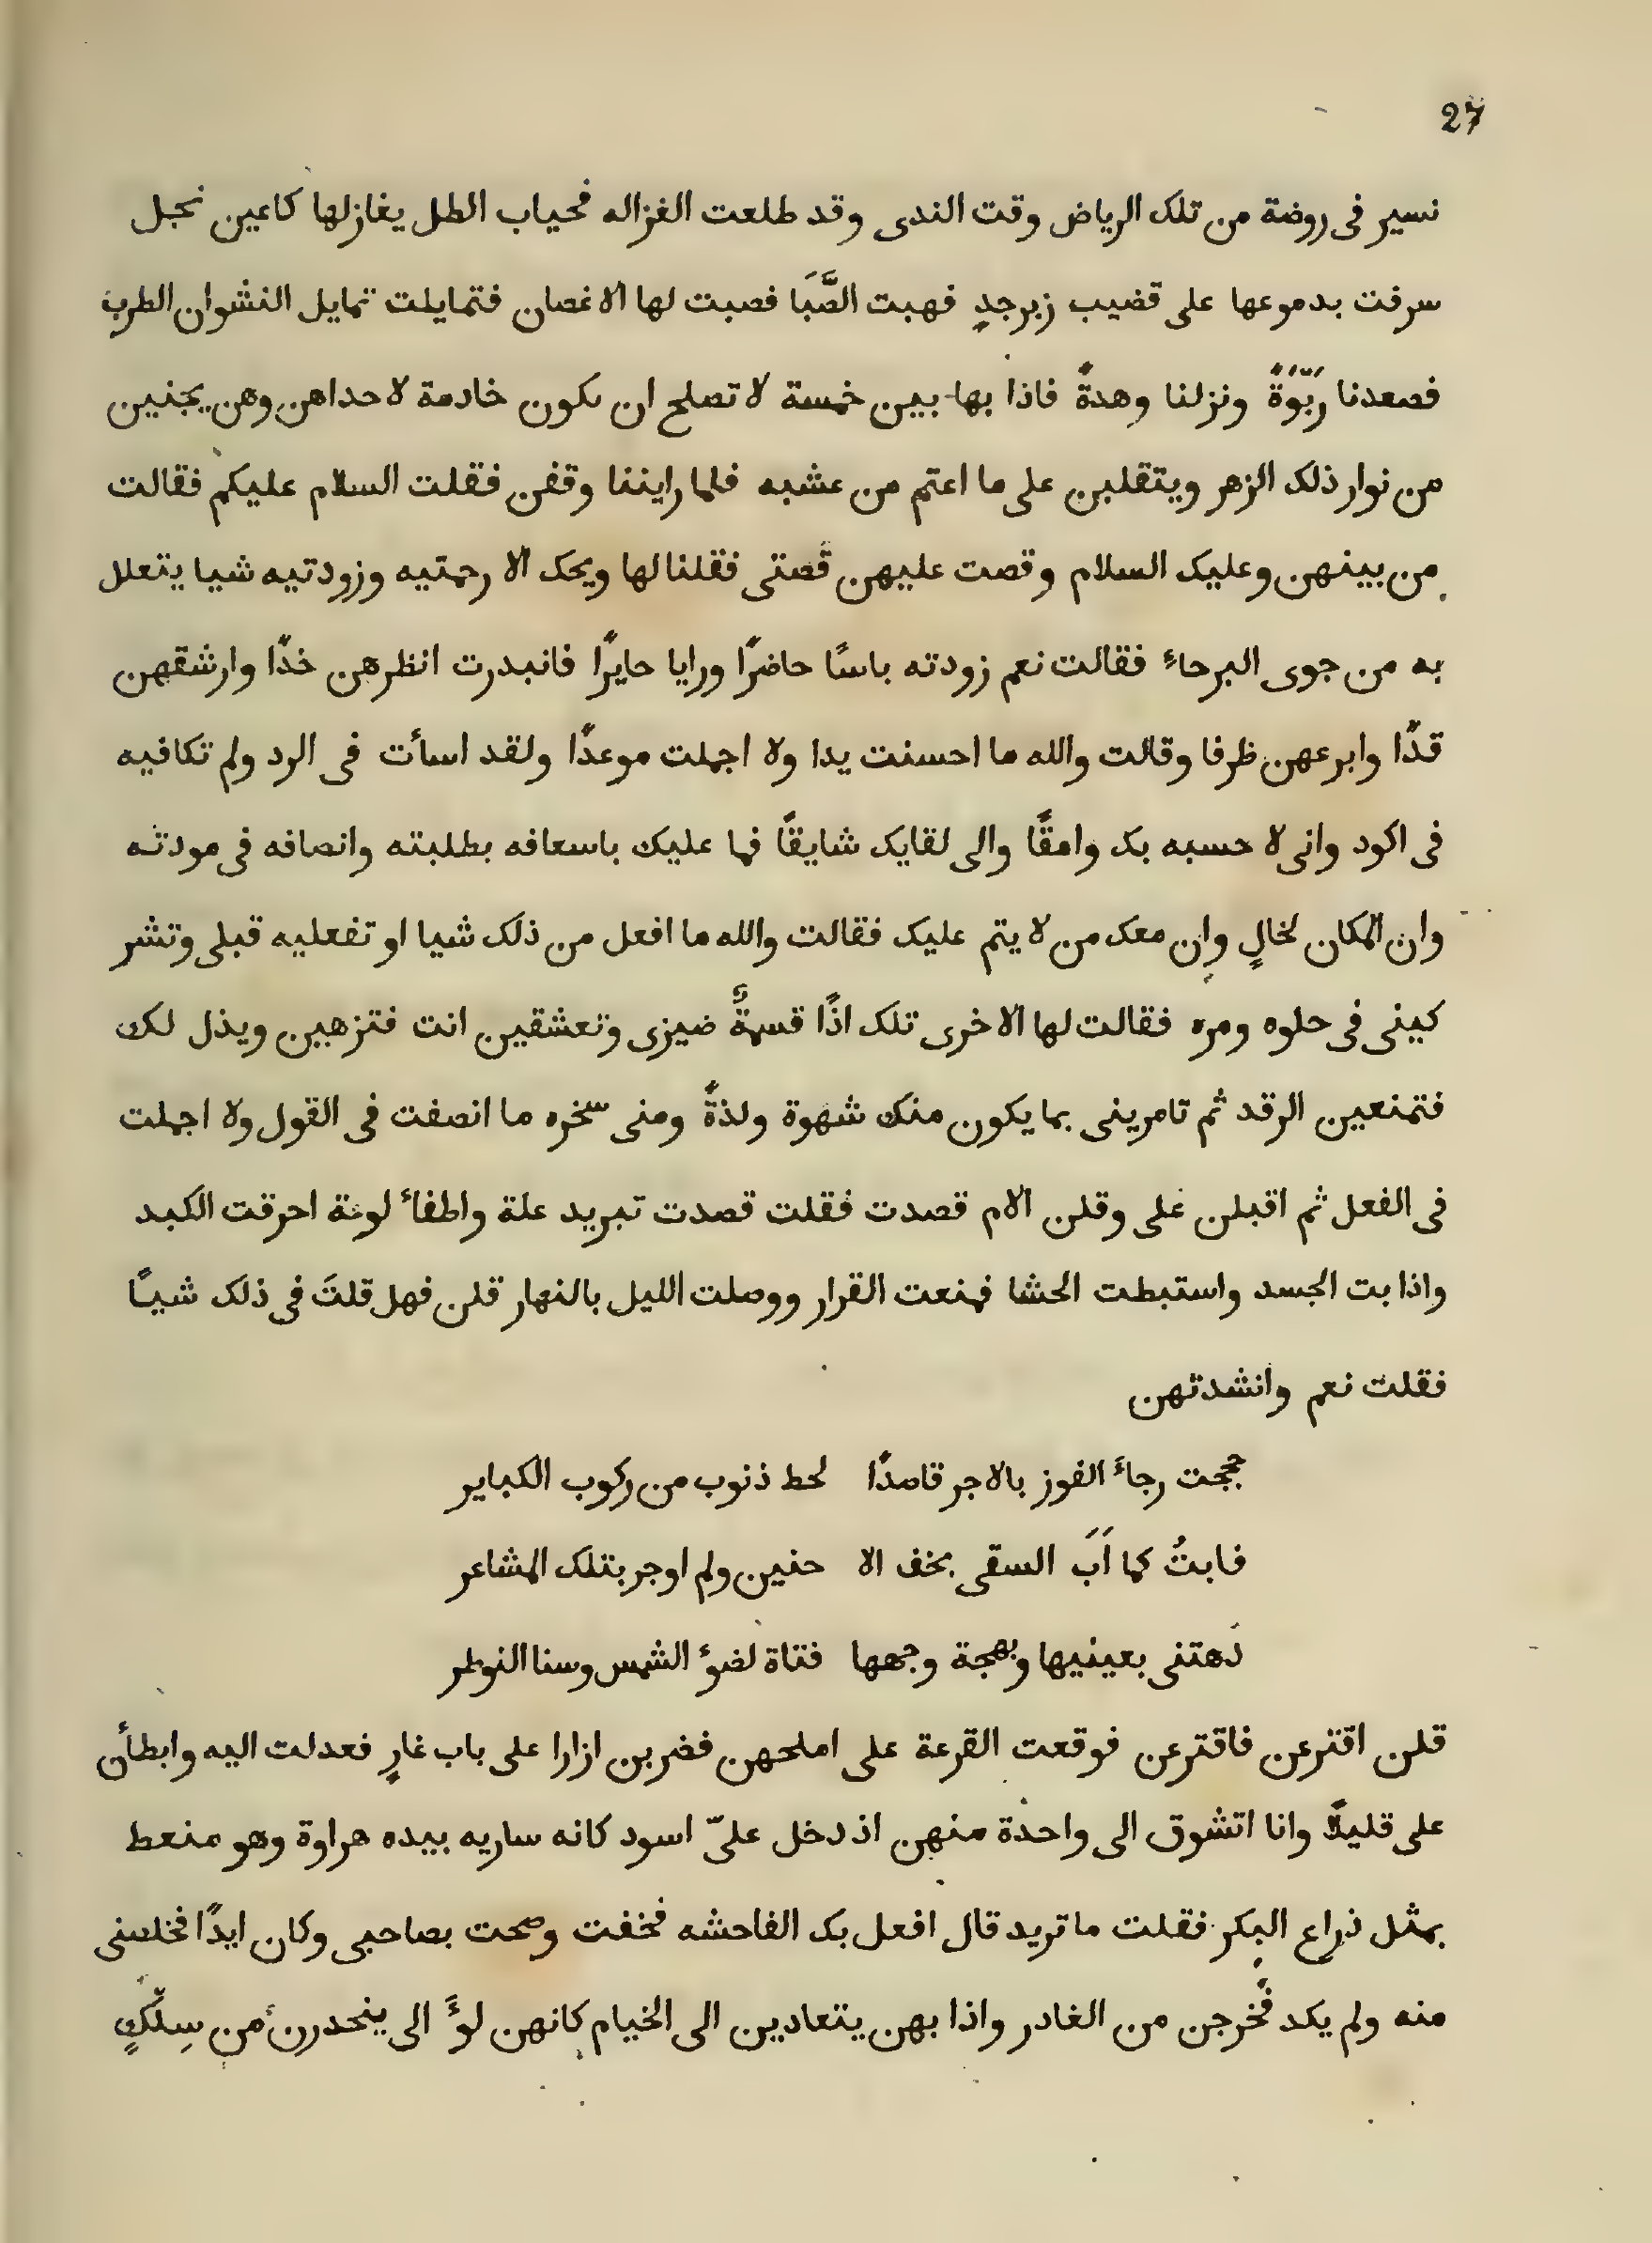 27
نسير فى روضة من تلك الرياض وقت الندى وقد طلعت الغزاله فحياب الطل يغازلها كاعين نجل
سرفت بدموعها على قضيب زبرجدٍ فهبت الصَّبَا فصبت لها الاغصان فتمايلت تمايل النشوان الطرب
فصعدنا رَبْوَةً ونزلنا وهدةً فاذا بها بين خمسة لا تصلح ان ىكون خادمة لاحداهن وهن يجنين
من نوار ذلك الزهر ويتقلبن على ما اعتم من عشبه فلما رايننا وقفن فقلت السلام عليكم فقالت
من بينهن وعليك السلام وقصت عليهن قصتى فقلنا لها ويحك الا رحمتيه وزودتيه شيا يتعلل
به من جوى البرحاءِ فقالت نعم زودته باسًا حاضرًا ورايا حايرًا فانبدرت انظرهن خدًا وارشقهن
قدًا وابرعهن ظرفا وقالت والله ما احسنت يدا ولا اجملت موعدًا ولقد اسأت فى الرد ولم تكافيه
فى اكود وانى لا حسبه بك وامقًا والى لقايك شايقًا فما عليك باسعافه بطلبته وانصافه فى مودته
وان المكان لخالٍ وان معك من لا يتم عليك فقالت والله ما افعل من ذلك شيا او تفعليه قبلى وتشر
كينى فى حلوه ومره فقالت لها الاخرى تلك اذًا قسمةٌ ضيزى وتعشقين انت فتزهين ويذل لك
فتمنعين الرقد ثم تامرينى بما يكون منك شهوة ولذةً ومنى سخره ما انصفت فى القول ولا اجملت
فى الفعل ثم اقبلن على وقلن الام قصدت فقلت قصدت تبريد علة واطفاءَ لوعة احرقت الكبد
واذابت الجسد واستبطت الحشا فمنعت القرار ووصلت الليل بالنهار قلن فهل قلتَ فى ذلك شيًا
فقلت نعم وانشدتهن
حججت رجاءَ الفوز بالاجر قاصدًا لحط ذنوب من ركوب الكباير
فابتُ كما اَبَ السقى بخف الا حنين ولم اوجر بتلك المشاعر
دَهتنى بعينيها وبهجة وجهها فتاة لضوءِ الشمس وسنا النواظر
قلن اقترعن فاقترعن فوقعت القرعة على املحهن فضربن ازارا على باب غارٍ فعدلت اليه وابطأن
على قليلًا وانا اتشوق الى واحدة منهن اذ دخل علىّ اسود كانه ساريه بيده هراوة وهو منعط
بمثل ذراع البكر فقلت ما تريد قال افعل بك الفاحشه فخفت وصحت بصاحبى وكان ايدًا فخلصنى
منه ولم يكد فخرجن من الغادر واذا بهن يتعادين الى الخيام كانهن لوءَ الى ينحدرن من سِلكٍ